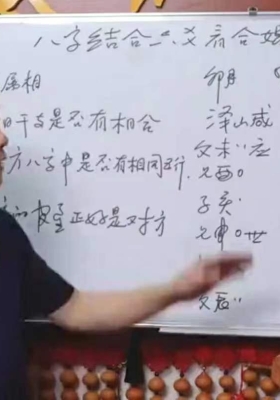 八字结合六爻看合
属相
日干支是否有相合
方八字中是否有相同
正好是对方
卯月
泽山咸
父未〃应
兄酉〇
子亥、
兄申〇世
父辰〃